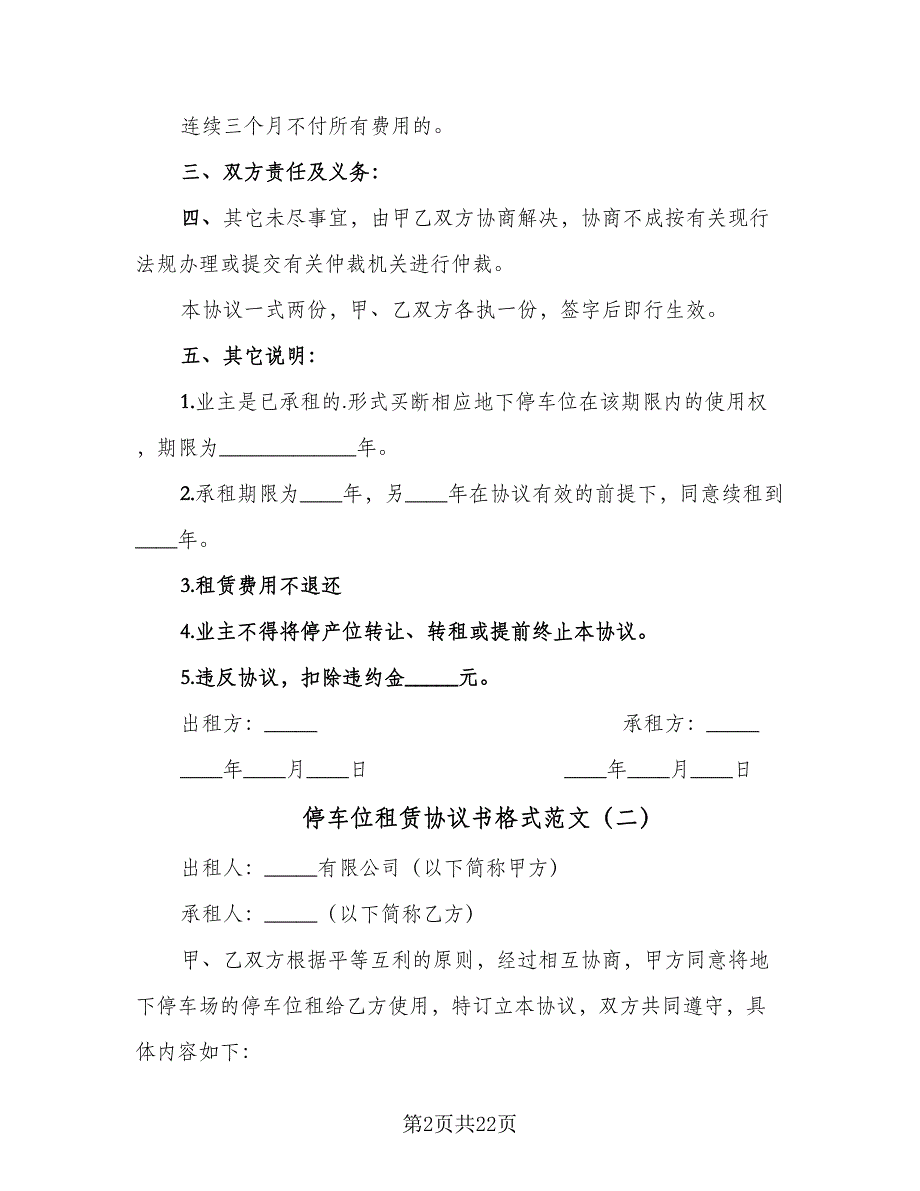 连续三个月不付所有费用的。
三、双方责任及义务：
四、其它未尽事宜，由甲乙双方协商解决，协商不成按有关现行
法规办理或提交有关仲裁机关进行仲裁。
本协议一式两份，甲、乙双方各执一份，签字后即行生效。
五、其它说明：
1.业主是已承租的.形式买断相应地下停车位在该期限内的使用权
，期限为_____________年。
2.承租期限为____年，另____年在协议有效的前提下，同意续租到
____年。
3.租赁费用不退还
4.业主不得将停产位转让、转租或提前终止本协议。
5.违反协议，扣除违约金_____元。
出租方：_____ 承租方：_____
____年____月____日 ____年____月____日
停车位租赁协议书格式范文（二）
出租人：_____有限公司（以下简称甲方）
承租人：_____（以下简称乙方）
甲、乙双方根据平等互利的原则，经过相互协商，甲方同意将地
下停车场的停车位租给乙方使用，特订立本协议，双方共同遵守，具
体内容如下：
第2页共22页